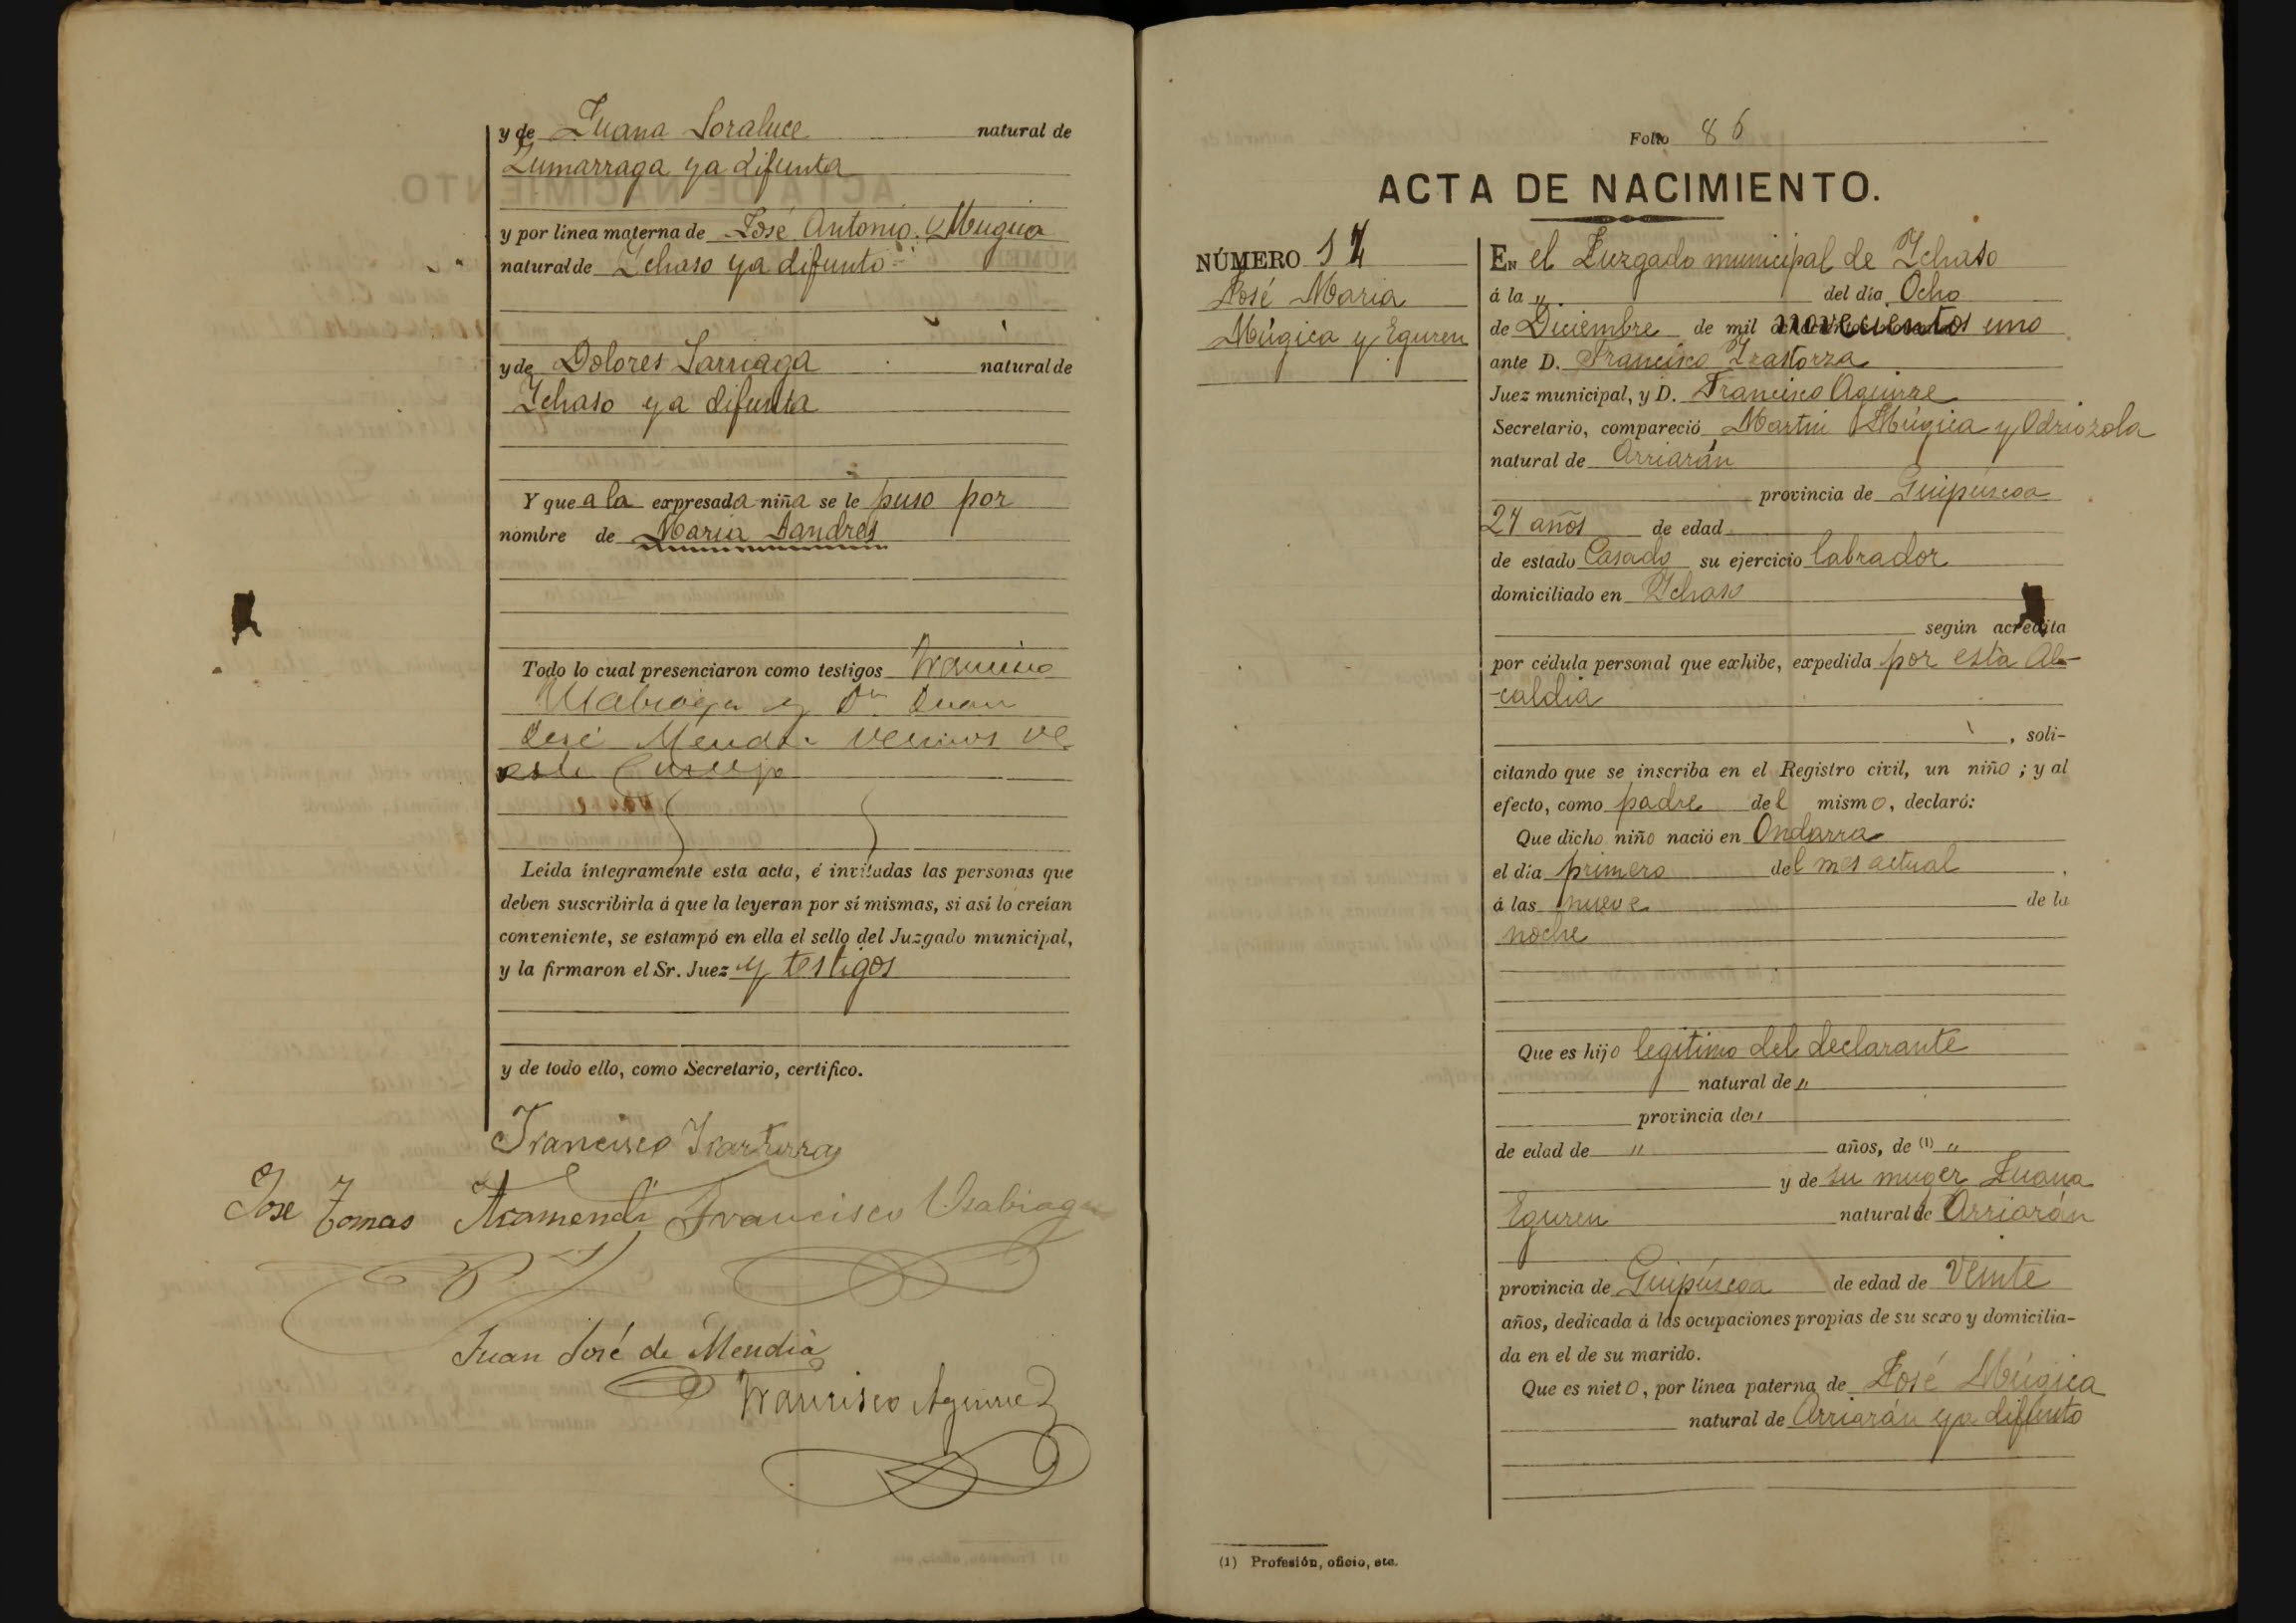 y de Juana Soraluce natural de
Zumarraga ya difunta
y por línea materna de José Antonio Mugica
natural de Ichaso ya difunto
y de Dolores Larriaga natural de
Ichaso ya difunta
Y que a la expresada niña se le puso por
nombre de Maria Sandres
Todo lo cual presenciaron como testigos Francisco
Usabiaga y Dn Juan
José Mendia vecinos de
este Concejo
Leída íntegramente esta acta, é invitadas las personas que
deben suscribirla á que la leyeran por sí mismas, si así lo creían
conveniente, se estampó en ella el sello del Juzgado municipal,
y la firmaron el Sr. Juez y testigos
y de todo ello, como Secretario, certifico.
Francisco
Jose Tomas Aramendi Francisco Usabiaga
Juan José de Mendia
Francisco Aguirre
Folio 86
ACTA DE NACIMIENTO.
NÚMERO 17
José Maria
Múgica y Eguren
EN el Juzgado municipal de Ichaso
á la " del día Ocho
de Diciembre de mil novecientos uno
ante D. Francisco Irastorza
Juez municipal, y D. Francisco Aguirre
Secretario, compareció Martin Múgica y Odriozola
natural de Arriarán
provincia de Guipúzcoa
27 años de edad
de estado Casado su ejercicio labrador
domiciliado en Ichaso
según acredita
por cédula personal que exhibe, expedida por esta Al-
-caldia
, soli-
citando que se inscriba en el Registro civil, un niño ; y al
efecto, como padre del mismo, declaró:
Que dicho niño nació en Ondarra
el día primero del mes actual
á las nueve de la
noche
Que es hijo legitimo del declarante
natural de "
provincia de "
de edad de " años, de (1) "
y de su muger Juana
Eguren natural de Arriarán
provincia de Guipúzcoa de edad de Veinte
años, dedicada á las ocupaciones propias de su sexo y domicilia-
da en el de su marido.
Que es nieto, por línea paterna de José Múgica
natural de Arriarán ya difunto
(1) Profesión, oficio, etc.